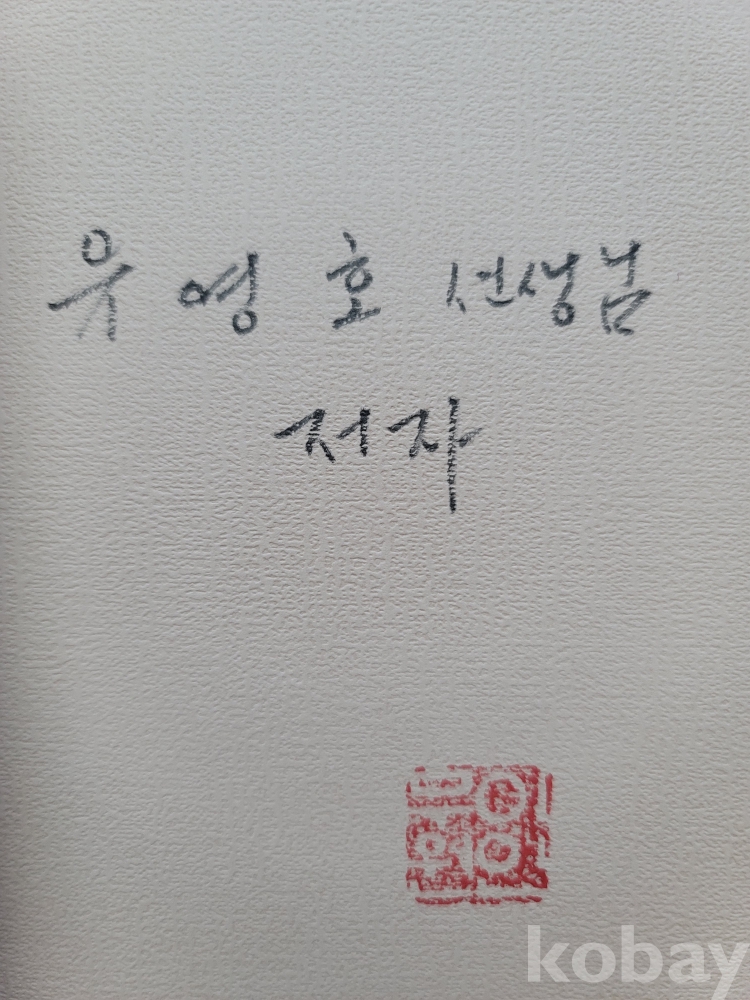 유영호 선생님
저자
kobay